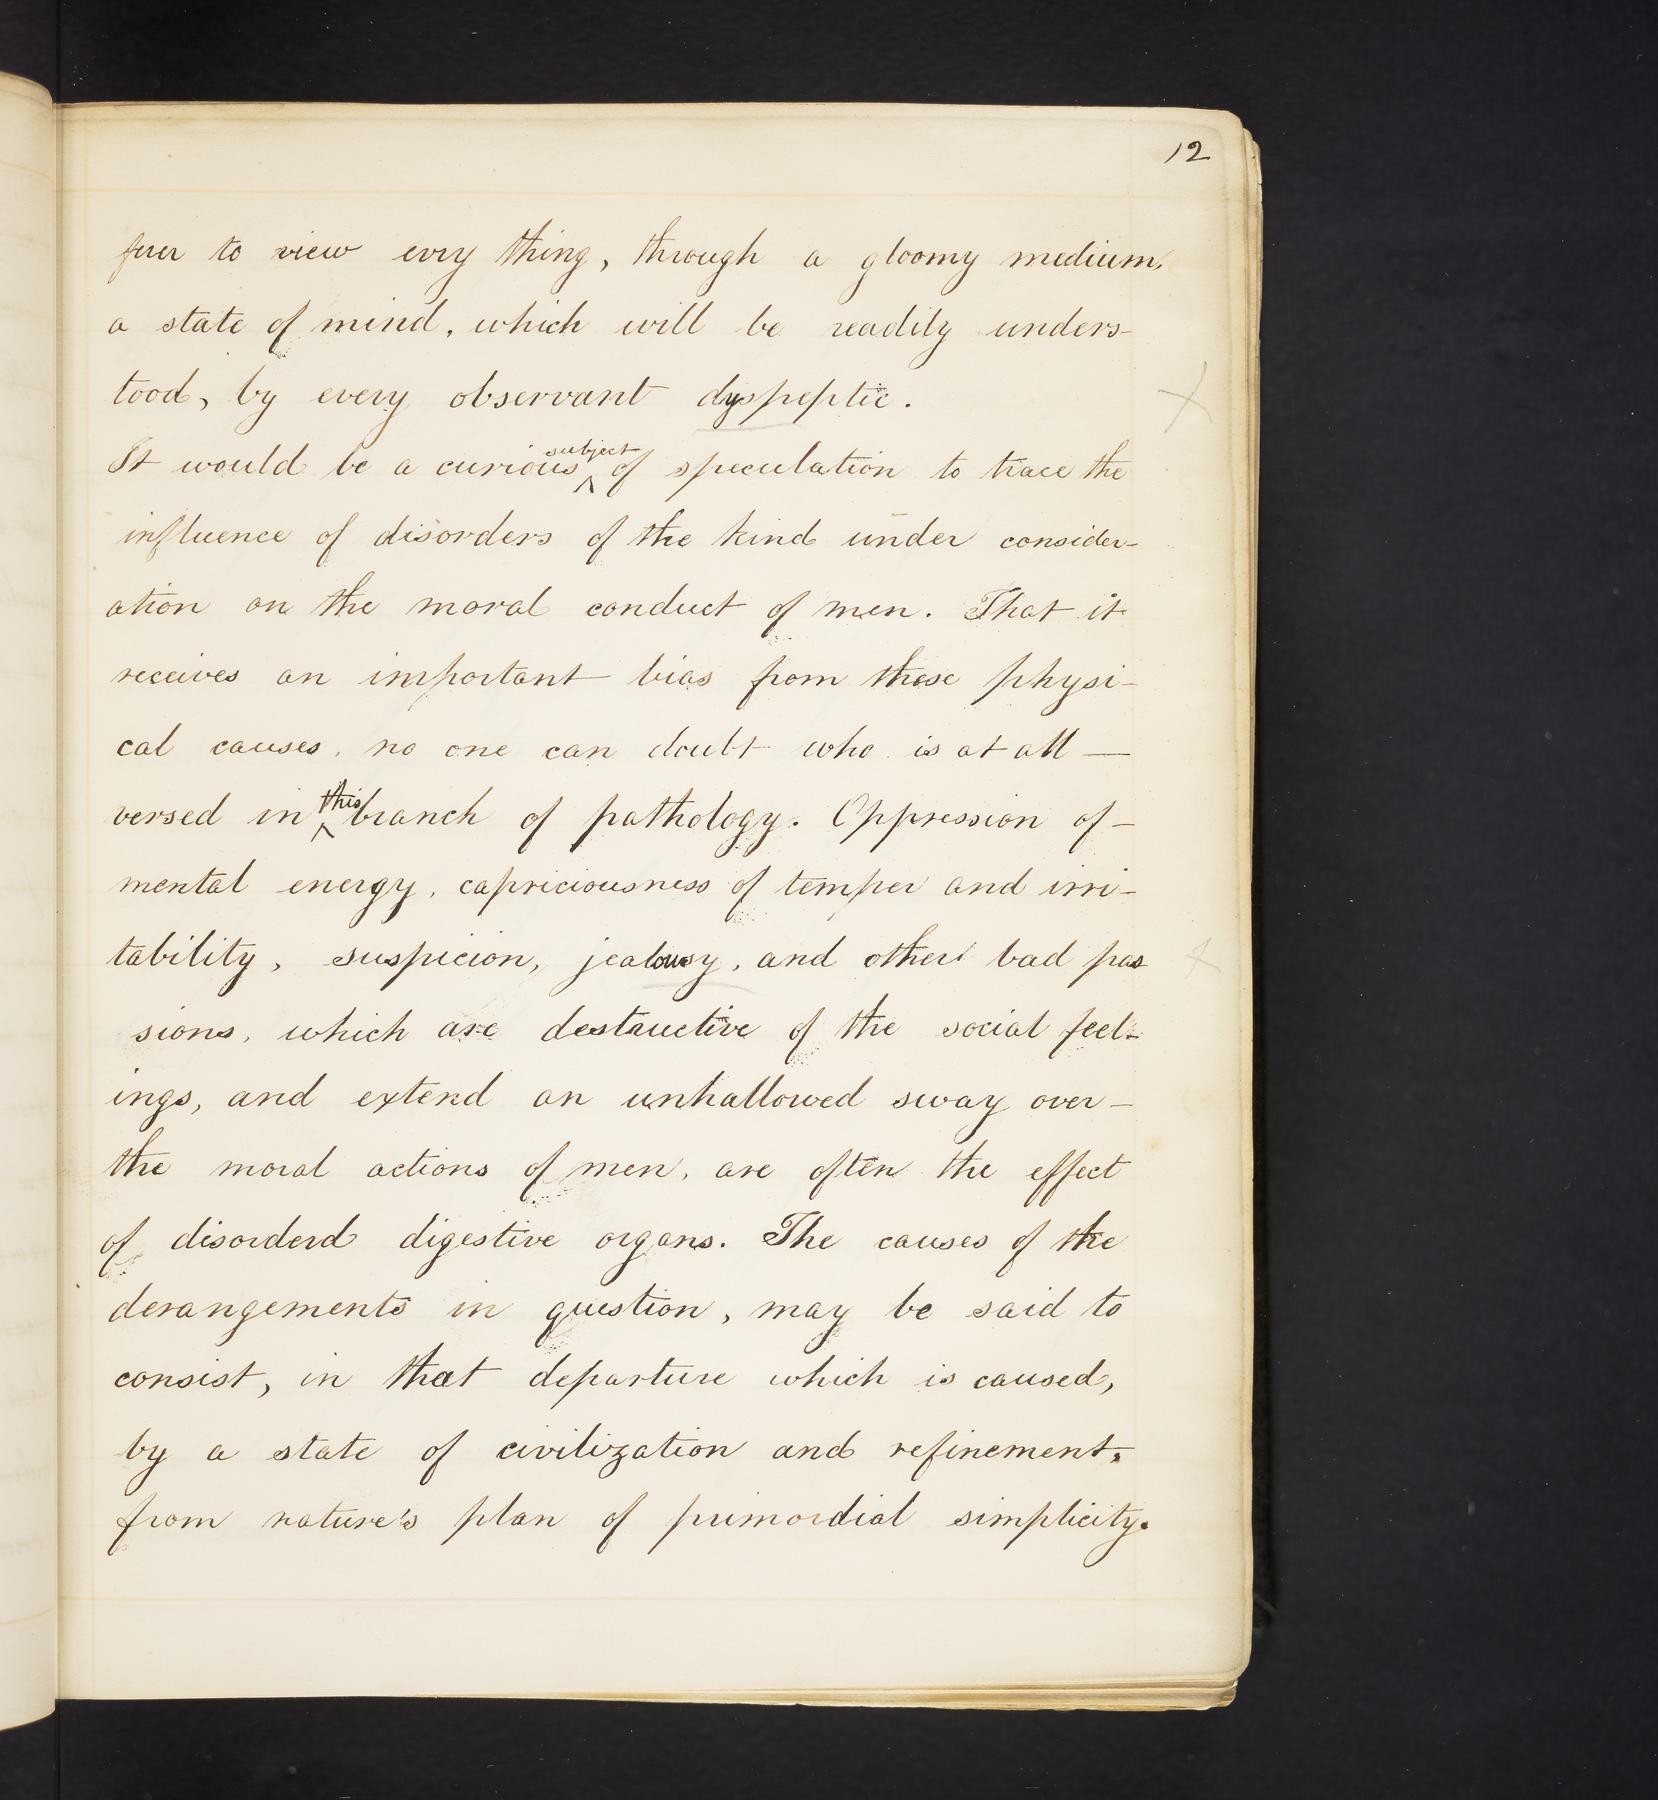 12
fer to view evry thing, through a gloomy medium,
a state of mind, which will be readily unders-
tood, by every observant dyspeptic.
It would be a curious subject of speculation to trace the
influence of disorders of the kind under consider-
ation on the moral conduct of men. That it
receives an important bias from these physi-
cal causes, no one can doubt who is at all —
versed in this branch of pathology. Oppression of —
mental energy, capriciousness of temper and irri-
tability, suspicion, jealousy, and other bad pas
sions, which are destructive of the social feel-
ings, and extend an unhallowed sway over —
the moral actions of men, are often the effect
of disorderd digestive organs. The causes of the
derangements in question, may be said to
consist, in that departure which is caused,
by a state of civilization and refinement,
from nature's plan of primordial simplicity.